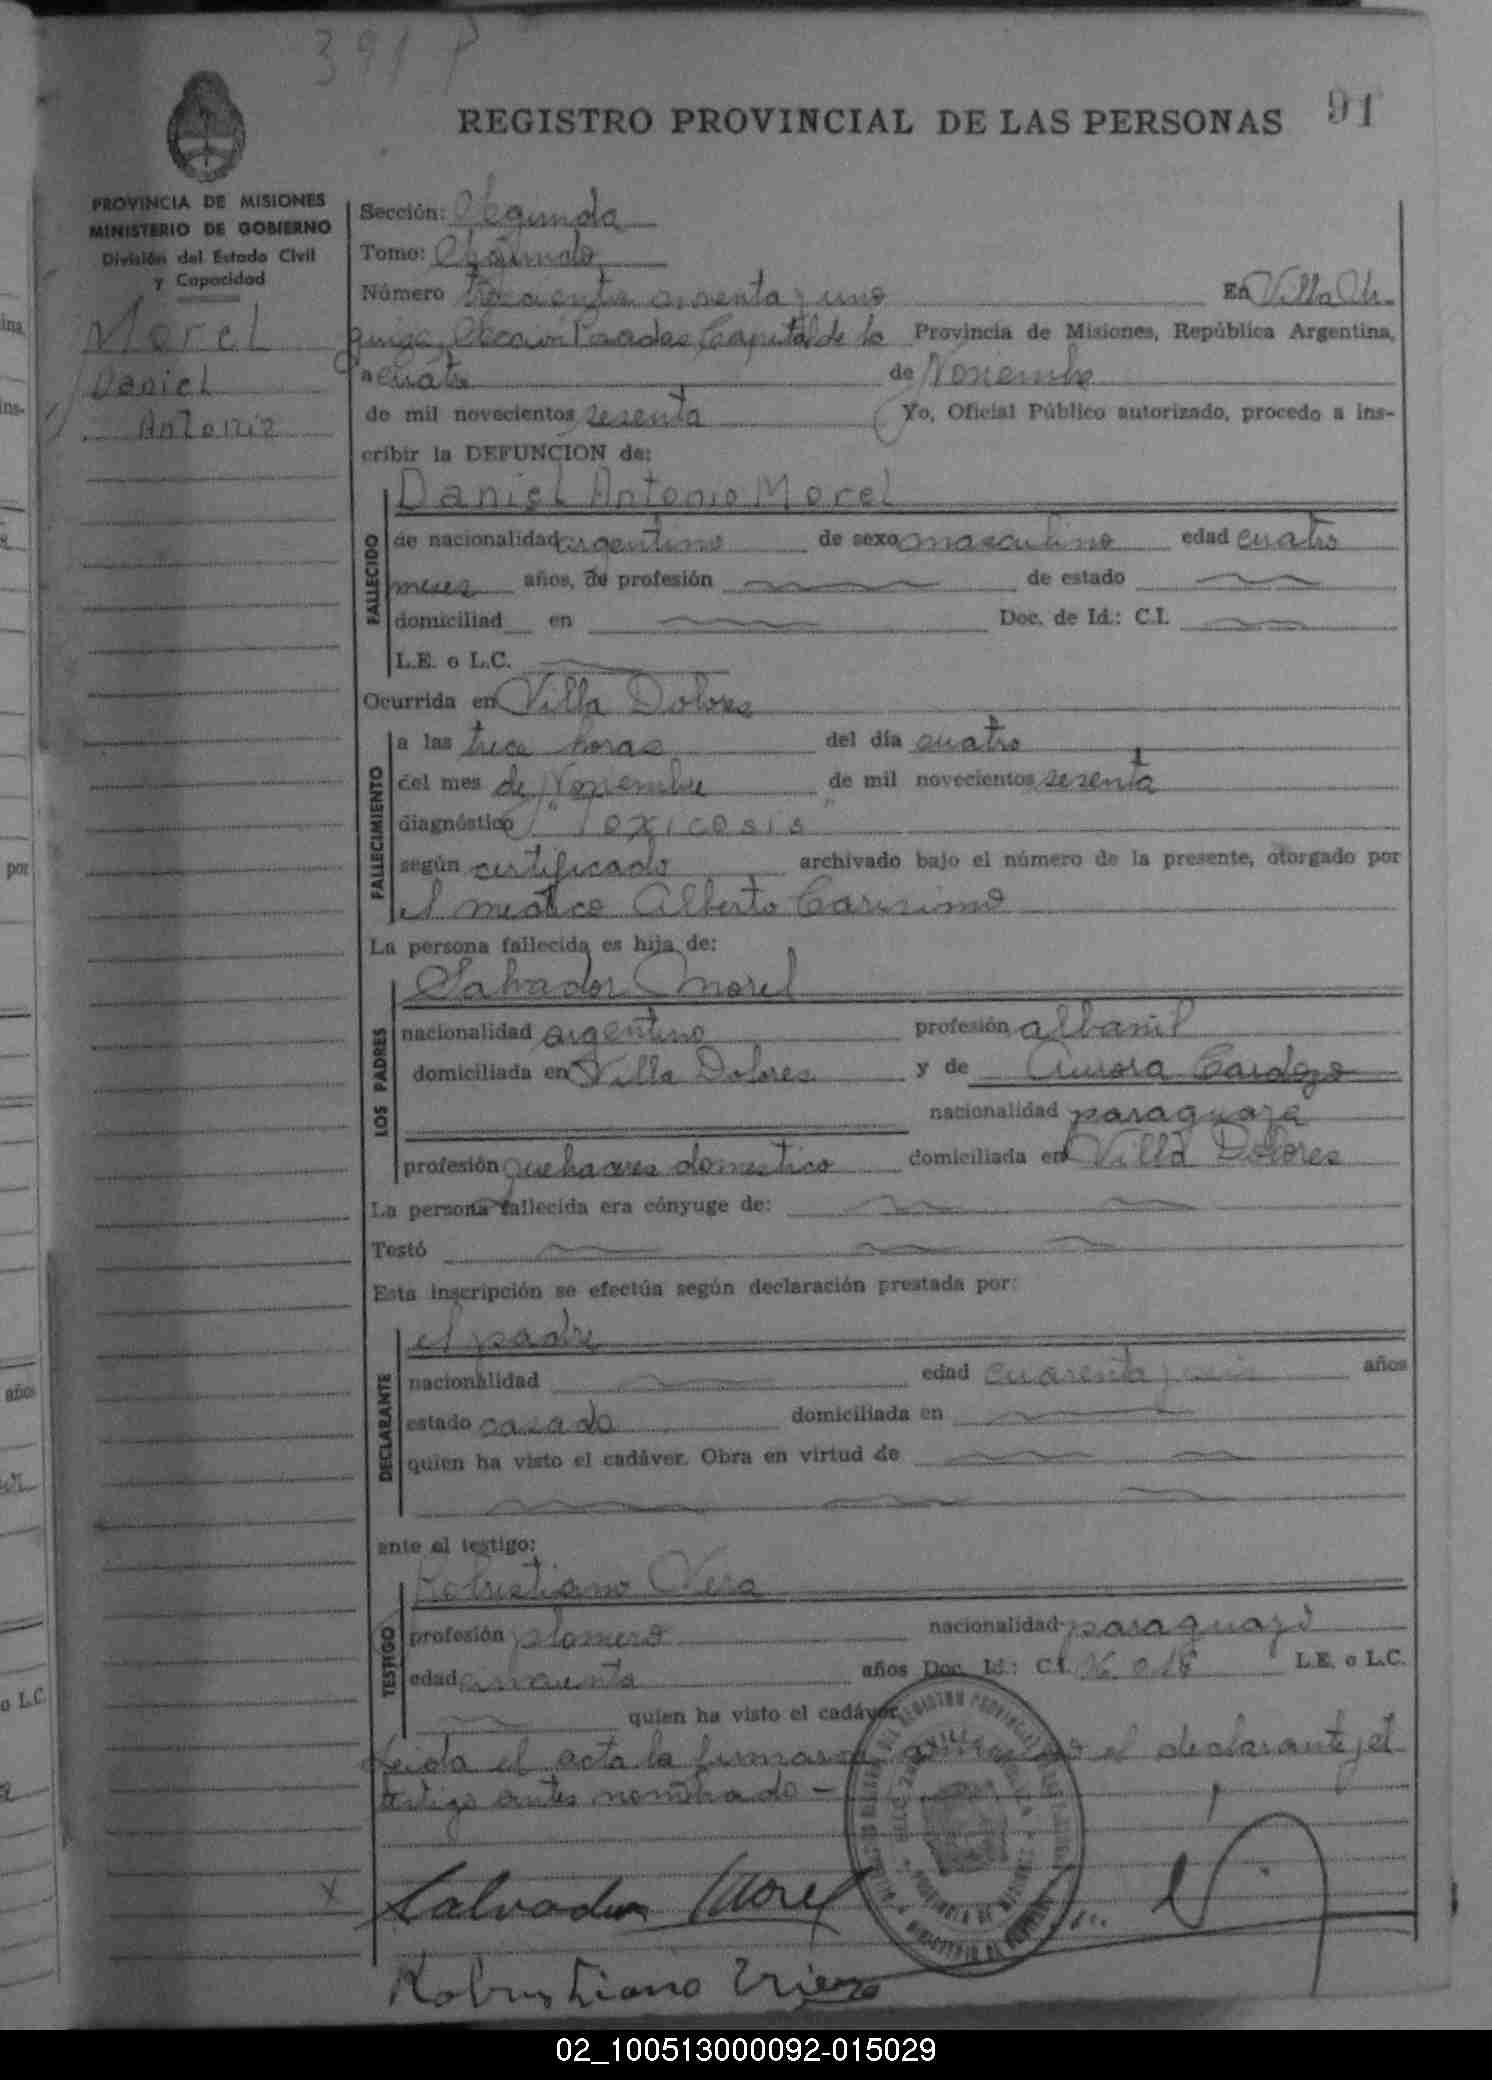 391 P
REGISTRO PROVINCIAL DE LAS PERSONAS 91
PROVINCIA DE MISIONES
MINISTERIO DE GOBIERNO
División del Estado Civil
y Capacidad
Morel
Daniel
Antonio
Sección: Segunda
Tomo: Segundo
Número trecientos noventa y uno En Villa Ur-
quiza, Sección Posadas, Capital de la Provincia de Misiones, República Argentina,
a cuatro de Noviembre
de mil novecientos sesenta Yo, Oficial Público autorizado, procedo a ins-
cribir la DEFUNCION de:
Daniel Antonio Morel
FALLECIDO
de nacionalidad argentino de sexo masculino edad cuatro
meses años, de profesión de estado
domiciliad en Doc. de Id.: C.I.
L.E. o L.C.
Ocurrida en Villa Dolores
FALLECIMIENTO
a las trece horas del día cuatro
del mes de Noviembre de mil novecientos sesenta
diagnóstico "Toxicosis"
según certificado archivado bajo el número de la presente, otorgado por
el medico Alberto Carisimo
La persona fallecida es hija de:
LOS PADRES
Salvador Morel
nacionalidad argentino profesión albanil
domiciliada en Villa Dolores y de Aurora Cardozo
nacionalidad paraguaya
profesión quehaceres domestico domiciliada en Villa Dolores
La persona fallecida era cónyuge de:
Testó
Esta inscripción se efectúa según declaración prestada por:
DECLARANTE
el padre
nacionalidad edad cuarenta y años
estado casado domiciliada en
quien ha visto el cadáver. Obra en virtud de
ante el testigo:
TESTIGO
Robustiano Vera
profesión plomero nacionalidad paraguayo
edad años Doc. Id.: C.I. L.E. o L.C.
quien ha visto el cadáver
Leida el acta la firmaron el declarante y el
testigo antes nombrado -
Salvador Morel
Robustiano
02_100513000092-015029